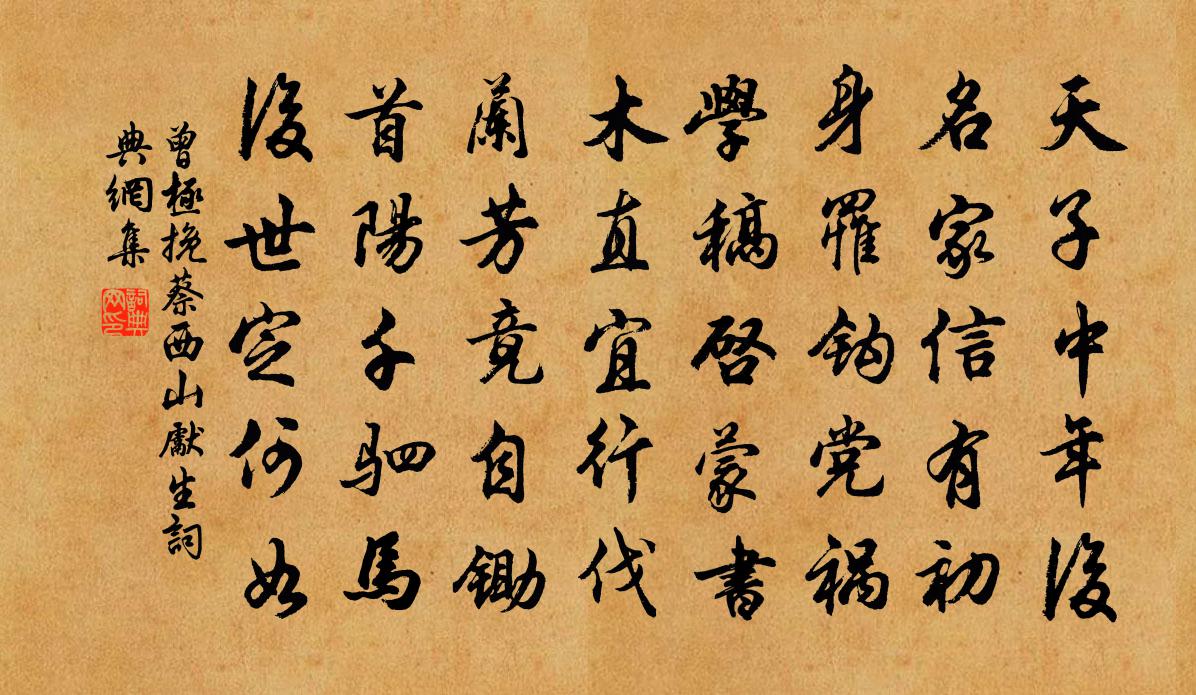 天子中年後
名家信有初
身罹鈎党祸
學稿啓蒙書
木直宜行伐
蘭芳竟自鋤
首陽千駟馬
後世定何如
曾極挽蔡西山獻生詞
典網集
詞典網印